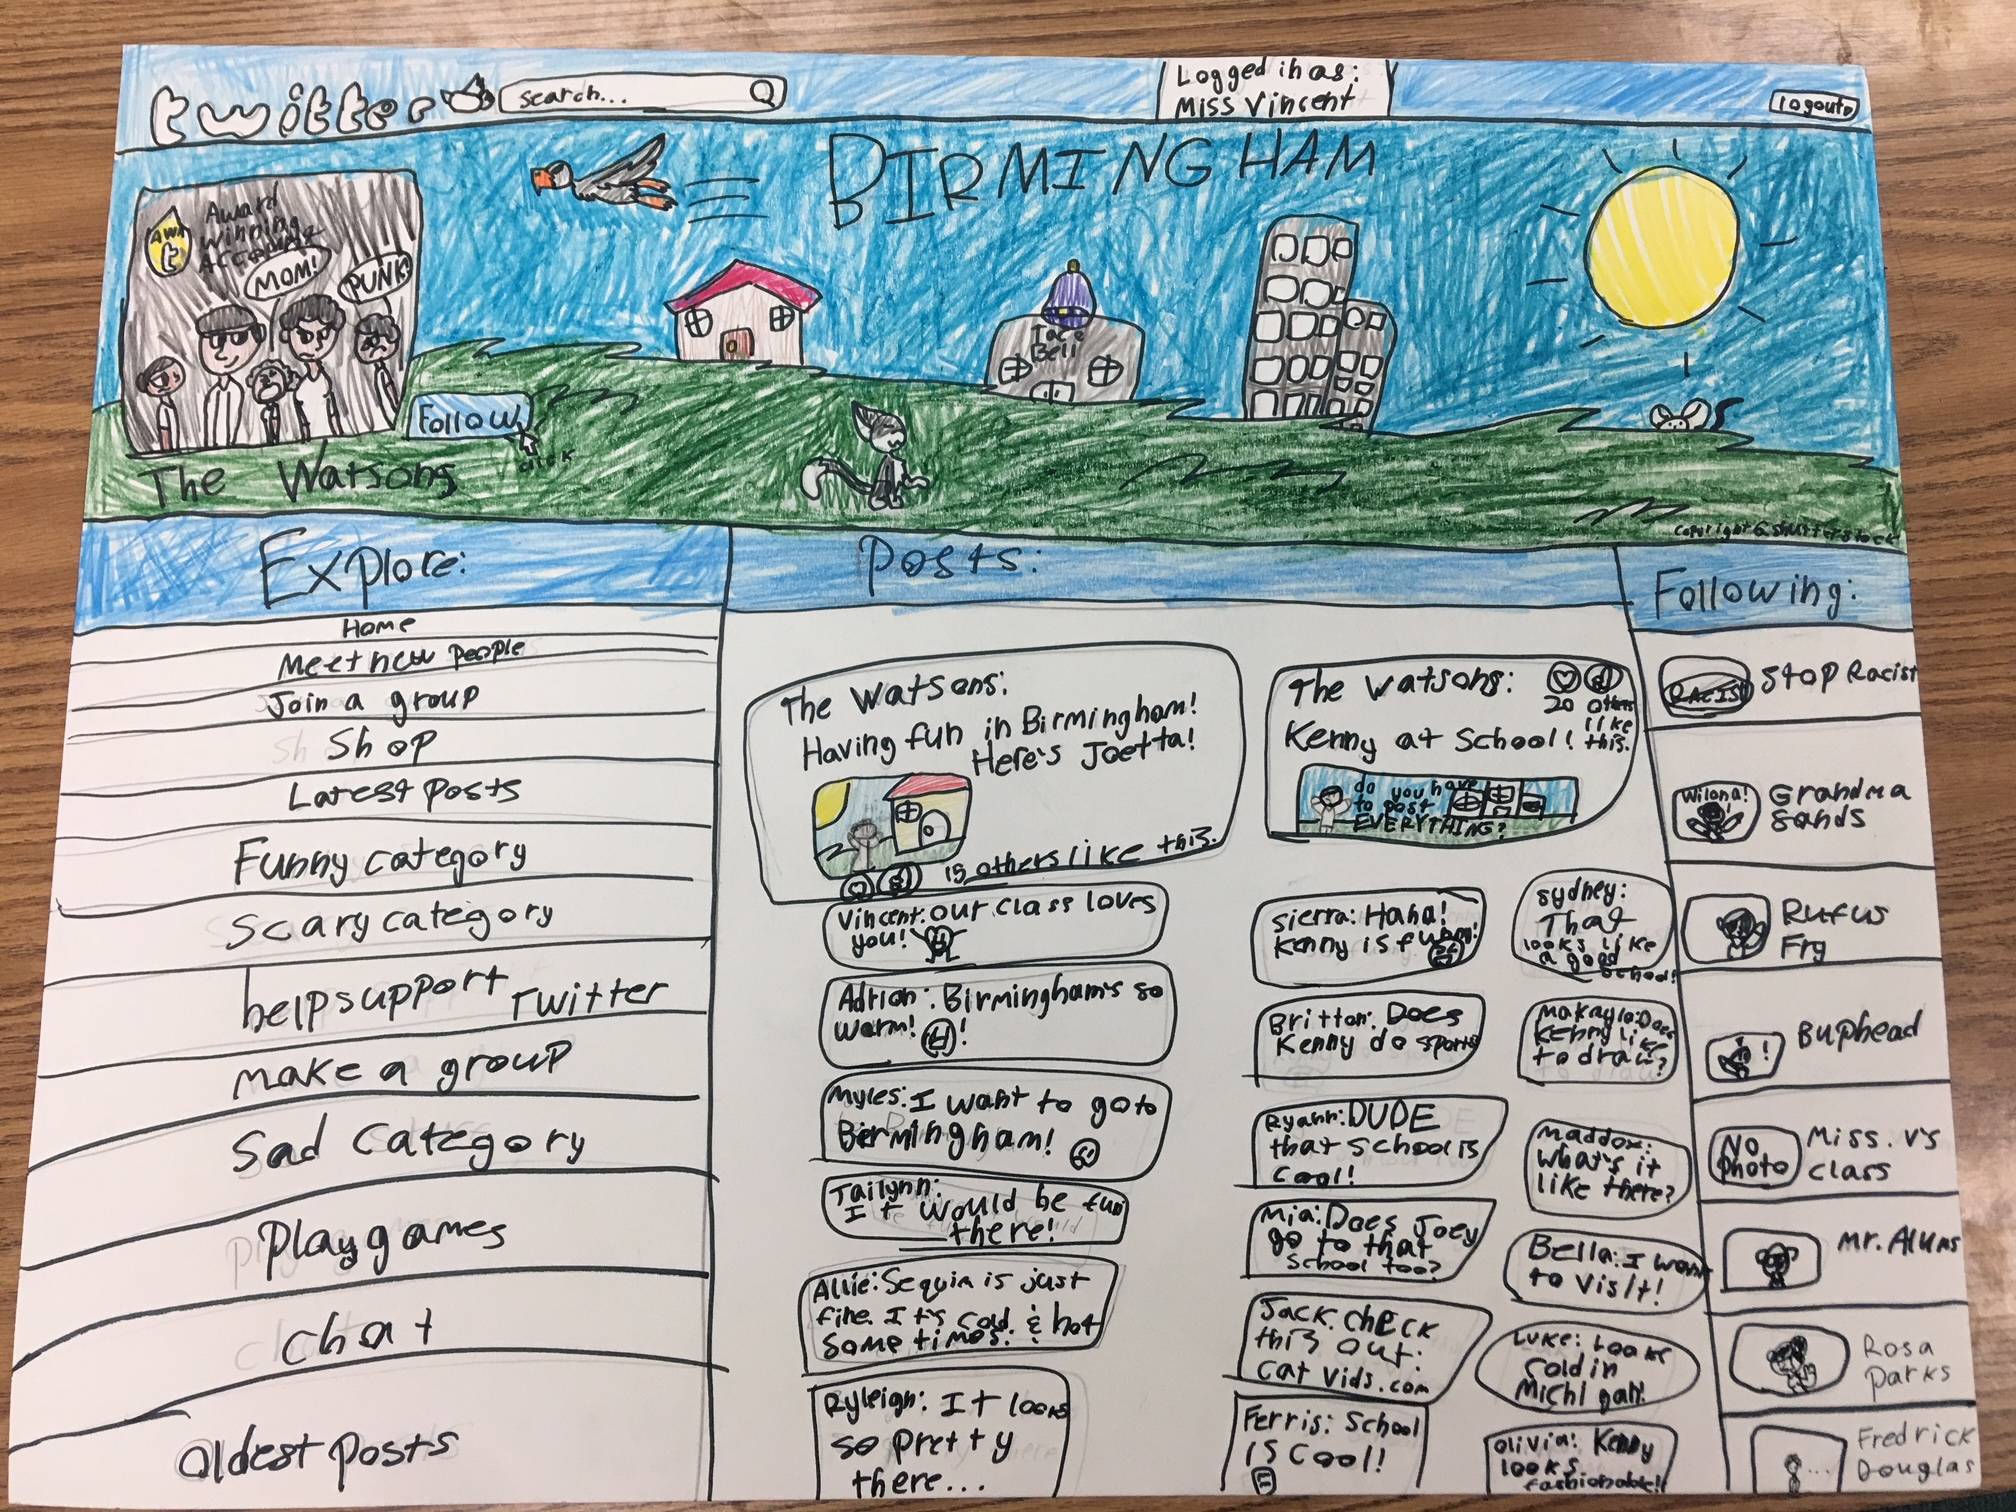 twitter
search...
Logged in as:
Miss Vincent
logout
BIRMINGHAM
AWA
t
Award
Winning
Account
MOM!
PUNK!
Follow
click
The Watsons
Taco
Bell
copyright © shutterstock
Explore:
Home
Meet new people
Join a group
Shop
Latest posts
Funny category
Scary category
help support Twitter
make a group
Sad category
Play games
chat
oldest posts
Posts:
The Watsons:
Having fun in Birmingham!
Here's Joetta!
15 others like this.
Vincent: our class loves
you!
Adrian: Birmingham's so
warm! !
Myles: I want to go to
Birmingham!
Tailynn:
It would be fun
there!
Allie: Sequin is just
fine. It's cold & hot
some times.
Ryleigh: It looks
so pretty
there...
The Watsons:
20 others
like
this.
Kenny at School!
do you have
to post
EVERYTHING?
Sierra: Haha!
Kenny is funny!
Britton: Does
Kenny do sports
Ryann: DUDE
that school is
cool!
Mia: Does Joey
go to that
school too?
Jack: check
this out:
cat vids.com
Ferris: School
is cool!
Sydney:
That
looks like
a good
school!
Makayla: Does
Kenny like
to draw?
Maddox:
what's it
like there?
Bella: I want
to visit!
Luke: Looks
cold in
Michigan!
Olivia: Kenny
looks
fashionable!!
Following:
RACIST
Stop Racist
Wilona!
Grandma
Sands
Rufus
Fry
!
Buphead
No
Photo
Miss. V's
class
Mr. Alums
Rosa
Parks
...
Fredrick
Douglas